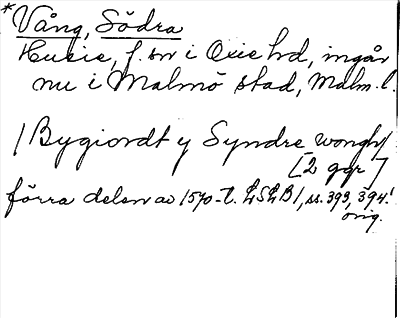 *Vång, Södra
Husie, f. sn i Oxie hd, ingår
nu i Malmö stad, Malm. l.
/Bygiordt y Syndre wongh/
[2 ggr]
förra delen av 1570-t. LSLB1, ss. 393, 394!
orig.